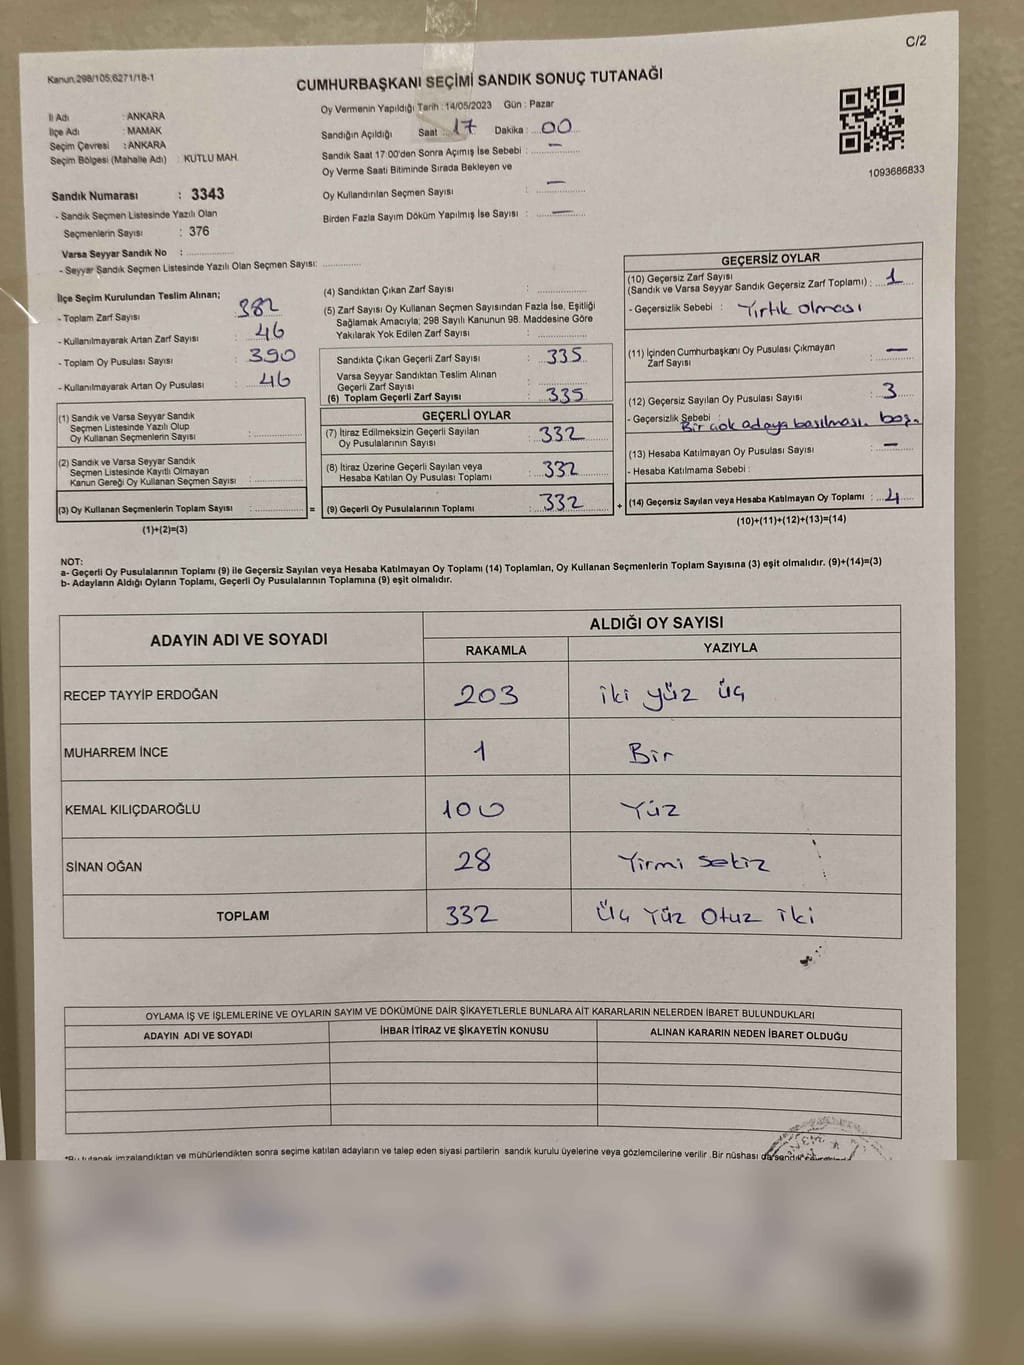 C/2
Kanun.298/105,6271/18-1
CUMHURBAŞKANI SEÇİMİ SANDIK SONUÇ TUTANAĞI
İl Adı : ANKARA
İlçe Adı : MAMAK
Seçim Çevresi : ANKARA
Seçim Bölgesi (Mahalle Adı) : KUTLU MAH.
Oy Vermenin Yapıldığı Tarih : 14/05/2023 Gün : Pazar
Sandığın Açıldığı Saat : 17 Dakika : 00
Sandık Saat 17:00'den Sonra Açımış İse Sebebi : —
Oy Verme Saati Bitiminde Sırada Bekleyen ve
Oy Kullandırılan Seçmen Sayısı : —
Birden Fazla Sayım Döküm Yapılmış İse Sayısı : —
1093686833
Sandık Numarası : 3343
- Sandık Seçmen Listesinde Yazılı Olan
Seçmenlerin Sayısı : 376
Varsa Seyyar Sandık No :
- Seyyar Sandık Seçmen Listesinde Yazılı Olan Seçmen Sayısı:
İlçe Seçim Kurulundan Teslim Alınan;
- Toplam Zarf Sayısı : 382
- Kullanılmayarak Artan Zarf Sayısı : 46
- Toplam Oy Pusulası Sayısı : 390
- Kullanılmayarak Artan Oy Pusulası : 46
(1) Sandık ve Varsa Seyyar Sandık
Seçmen Listesinde Yazılı Olup
Oy Kullanan Seçmenlerin Sayısı :
(2) Sandık ve Varsa Seyyar Sandık
Seçmen Listesinde Kayıtlı Olmayan
Kanun Gereği Oy Kullanan Seçmen Sayısı :
(3) Oy Kullanan Seçmenlerin Toplam Sayısı :
(1)+(2)=(3)
(4) Sandıktan Çıkan Zarf Sayısı :
(5) Zarf Sayısı Oy Kullanan Seçmen Sayısından Fazla İse, Eşitliği
Sağlamak Amacıyla; 298 Sayılı Kanunun 98. Maddesine Göre
Yakılarak Yok Edilen Zarf Sayısı :
Sandıkta Çıkan Geçerli Zarf Sayısı : 335
Varsa Seyyar Sandıktan Teslim Alınan
Geçerli Zarf Sayısı :
(6) Toplam Geçerli Zarf Sayısı : 335
GEÇERLİ OYLAR
(7) İtiraz Edilmeksizin Geçerli Sayılan
Oy Pusulalarının Sayısı : 332
(8) İtiraz Üzerine Geçerli Sayılan veya
Hesaba Katılan Oy Pusulası Toplamı : 332
= (9) Geçerli Oy Pusulalarının Toplamı : 332
GEÇERSİZ OYLAR
(10) Geçersiz Zarf Sayısı
(Sandık ve Varsa Seyyar Sandık Geçersiz Zarf Toplamı) : 1
- Geçersizlik Sebebi : Yırtık olması
(11) İçinden Cumhurbaşkanı Oy Pusulası Çıkmayan
Zarf Sayısı : —
(12) Geçersiz Sayılan Oy Pusulası Sayısı : 3
- Geçersizlik Sebebi : Bir çok adaya basılması. boş.
(13) Hesaba Katılmayan Oy Pusulası Sayısı : —
- Hesaba Katılmama Sebebi :
+ (14) Geçersiz Sayılan veya Hesaba Katılmayan Oy Toplamı : 4
(10)+(11)+(12)+(13)=(14)
NOT:
a- Geçerli Oy Pusulalarının Toplamı (9) ile Geçersiz Sayılan veya Hesaba Katılmayan Oy Toplamı (14) Toplamları, Oy Kullanan Seçmenlerin Toplam Sayısına (3) eşit olmalıdır. (9)+(14)=(3)
b- Adayların Aldığı Oyların Toplamı, Geçerli Oy Pusulalarının Toplamına (9) eşit olmalıdır.
ADAYIN ADI VE SOYADI ALDIĞI OY SAYISI
RAKAMLA YAZIYLA
RECEP TAYYİP ERDOĞAN 203 iki yüz üç
MUHARREM İNCE 1 Bir
KEMAL KILIÇDAROĞLU 100 Yüz
SİNAN OĞAN 28 Yirmi sekiz
TOPLAM 332 Üç Yüz Otuz iki
OYLAMA İŞ VE İŞLEMLERİNE VE OYLARIN SAYIM VE DÖKÜMÜNE DAİR ŞİKAYETLERLE BUNLARA AİT KARARLARIN NELERDEN İBARET BULUNDUKLARI
ADAYIN ADI VE SOYADI İHBAR İTİRAZ VE ŞİKAYETİN KONUSU ALINAN KARARIN NEDEN İBARET OLDUĞU
*Bu tutanak imzalandıktan ve mühürlendikten sonra seçime katılan adayların ve talep eden siyasi partilerin sandık kurulu üyelerine veya gözlemcilerine verilir. Bir nüshası da